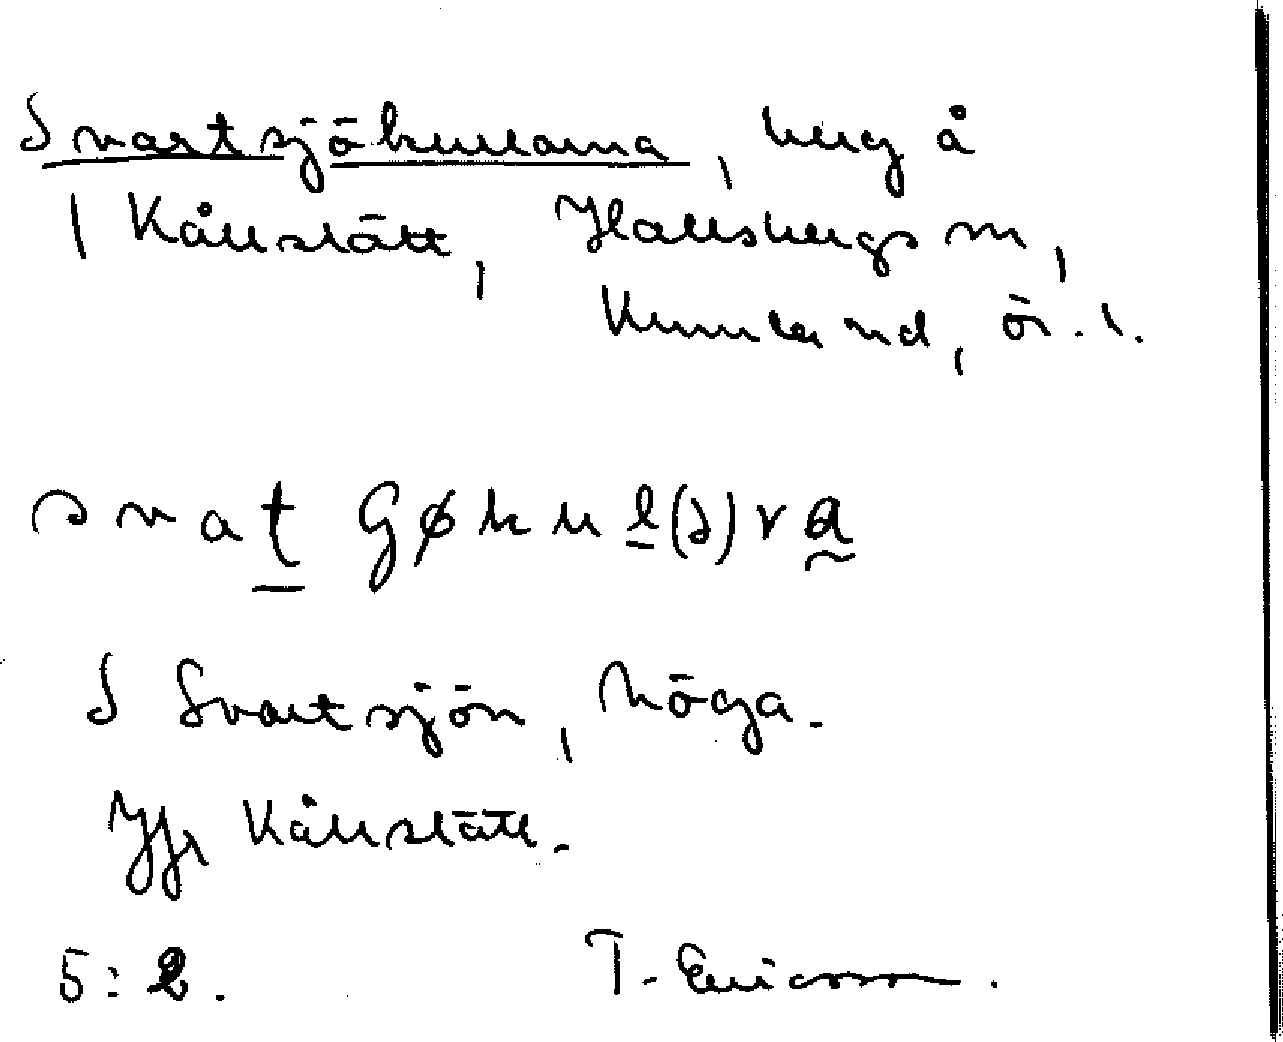 Svartsjökullarna, berg å
/ Kållslätt, Hallsbergs sn,
Kumla hd, ör. l.
svat Gøku l(ə)r a
S Svartsjön, höga.
Jfr Kållslätt.
5: 2. T. Ericsson.